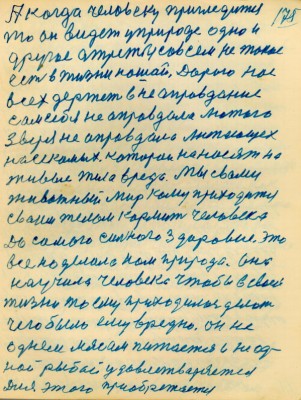 175
А когда человеку пригледится
то он видет у природе одно и
другое а третье совсем не такое
есть в жизни нашей, Дарьго нас
всех держет в не оправдание
сам себя не оправдала лютого
Зверя не оправдала лютующех
насекомих, которои наносят на
живые тела вреда. Мы с вами
животный мир кому приходится
своим телом кормить человека
до самого силного здоровие. Это
все поделала нам природа. Она
научила человека чтобы в своей
жизни то ему приходилося делать
чего было ему вредно. Он не
однем мясом питается и не од-
ной рыбой удовлетваряется
Для этого приобретается